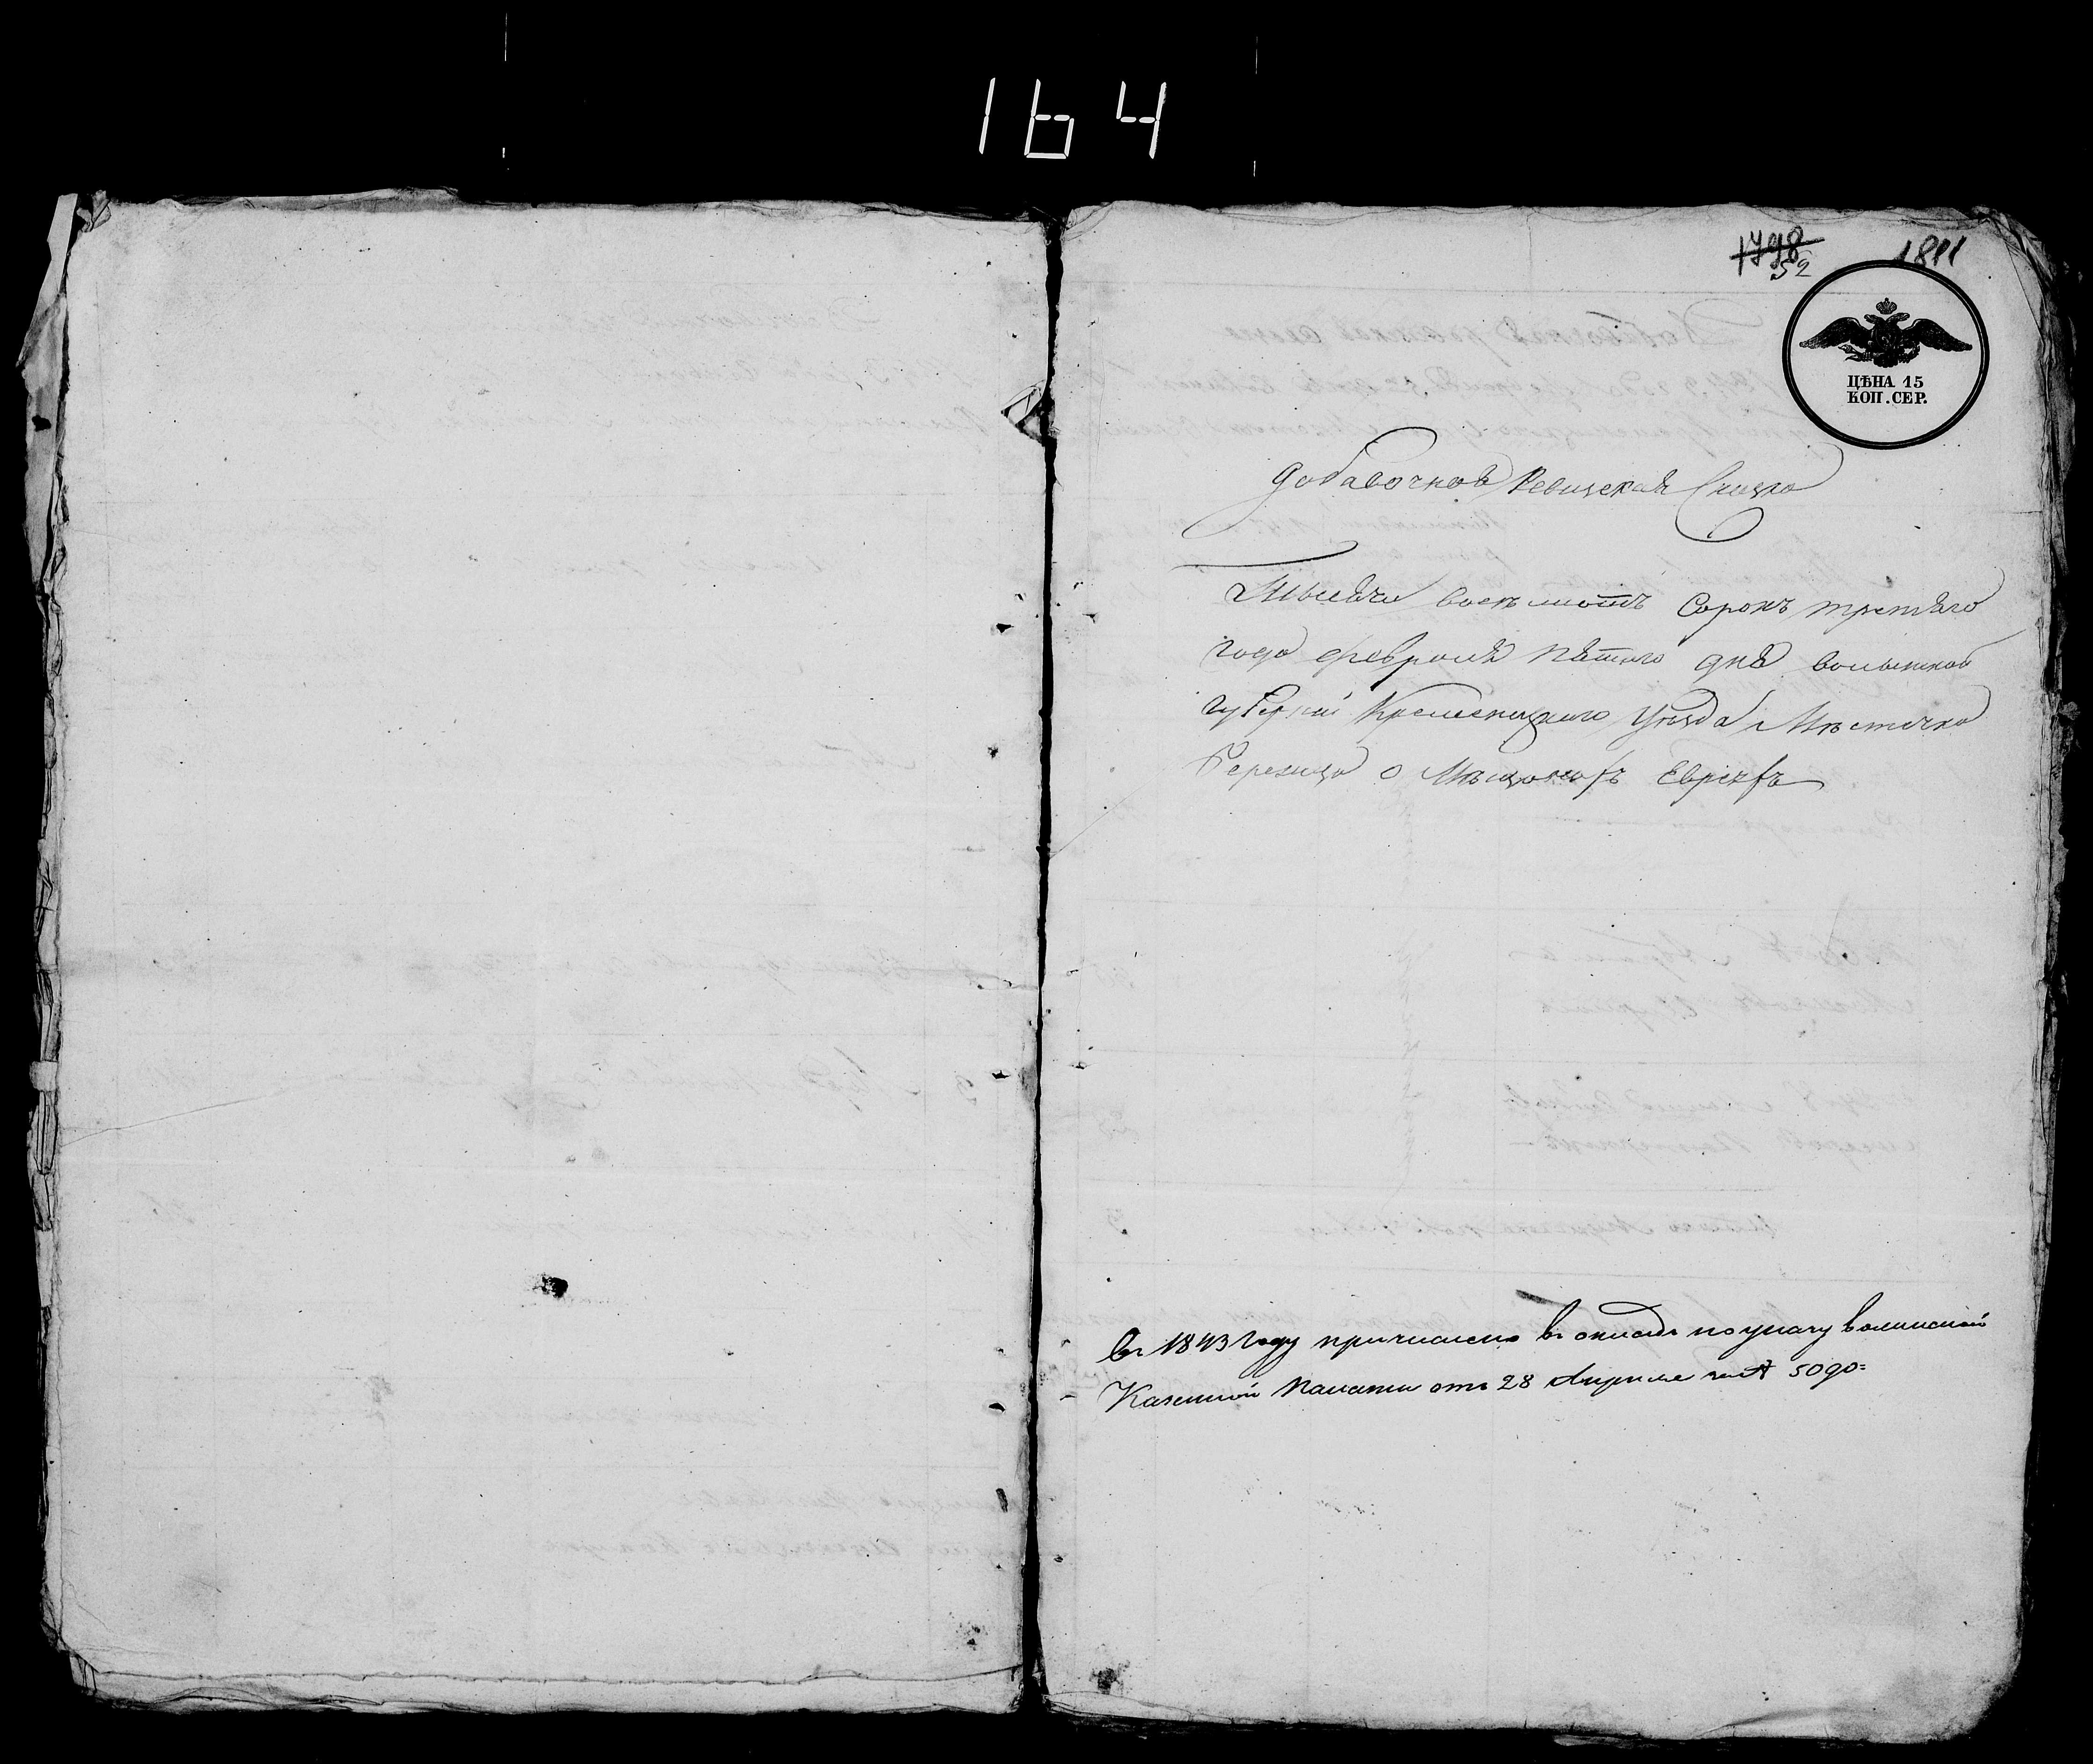 164
1798
52
1811
ЦѢНА 15
КОП. СЕР.
Добавочная Ревизская Сказка
Тысяча восемьсотъ Сорокъ третяго
года февраля пятого дня волынской
губернии Кремененцкого Уезда Мѣстечка
Бережца о Мѣщанахъ Евреяхъ
Въ 1843 году причислено въ окладъ по указу волынской
Казенной Палаты отъ 28 Апреля за №